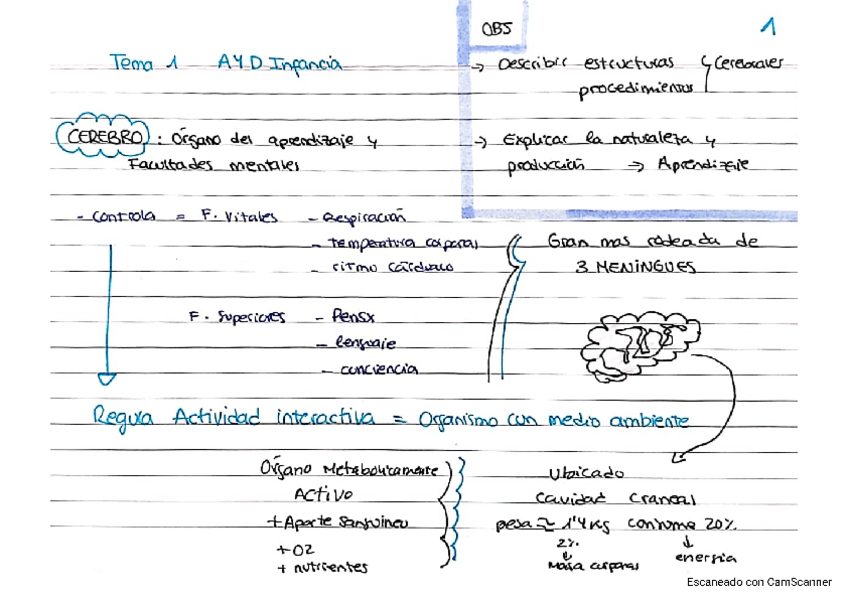 OBJ
1
Tema 1 AYD Infancia
→ Describir estructuras y cerebrales
procedimientos
CEREBRO : Órgano del aprendizaje y
Facultades mentales
→ Explicar la naturaleza y
producción → Aprendizaje
- Controla = F. Vitales - Respiración
- temperatura corporal
- ritmo cardiaco
Gran mas rodeada de
3 MENINGUES
F. Superiores - Pensx
- lenguaje
- conciencia
Regula Actividad interactiva = Organismo con medio ambiente
Órgano Metabolicamente
Activo
+ Aporte Sanguineo
+ O2
+ nutrientes
Ubicado
Cavidad Craneal
pesa ≈ 1'4 kg consume 20%
2% ↓ energia
↓ Masa corporal
Escaneado con CamScanner